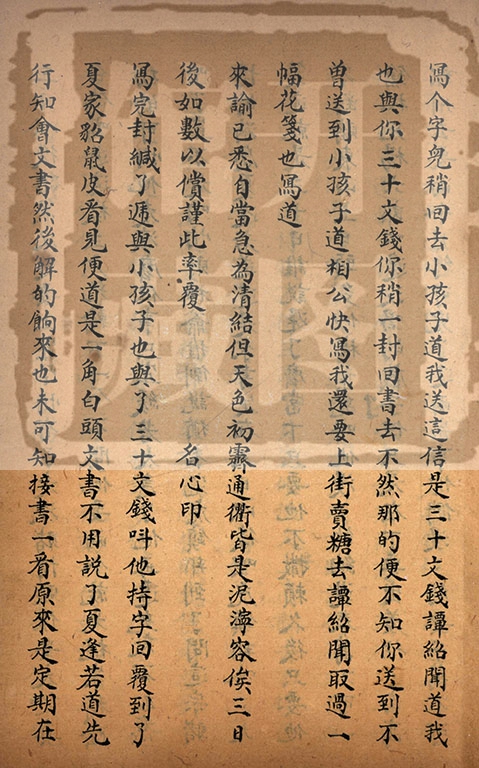 寫个字兒稍回去小孩子道我送這信是三十文錢譚紹聞道我
也與你三十文錢你稍一封回書去不然那的便不知你送到不
曾送到小孩子道相公快寫我還要上街賣糖去譚紹聞取過一
幅花箋也寫道
來諭已悉自當急為清結但天色初霽通衢皆是泥濘容俟三日
後如數以償謹此率覆 名心印
寫完封緘了遞與小孩子也與了三十文錢呌他持字回覆到了
夏家貂鼠皮看見便道是一角白頭文書不用説了夏逢若道先
行知會文書然後解的餉來也未可知接書一看原來是定期在